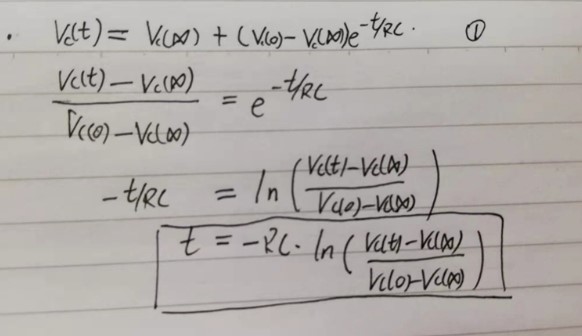 · Vc(t) = Vc(∞) + (Vc(0) – Vc(∞))e^-t/RC. ①
(Vc(t) – Vc(∞)) / (Vc(0) – Vc(∞)) = e^-t/RC
-t/RC = ln ((Vc(t) – Vc(∞)) / (Vc(0) – Vc(∞)))
t = -RC · ln ((Vc(t) – Vc(∞)) / (Vc(0) – Vc(∞)))